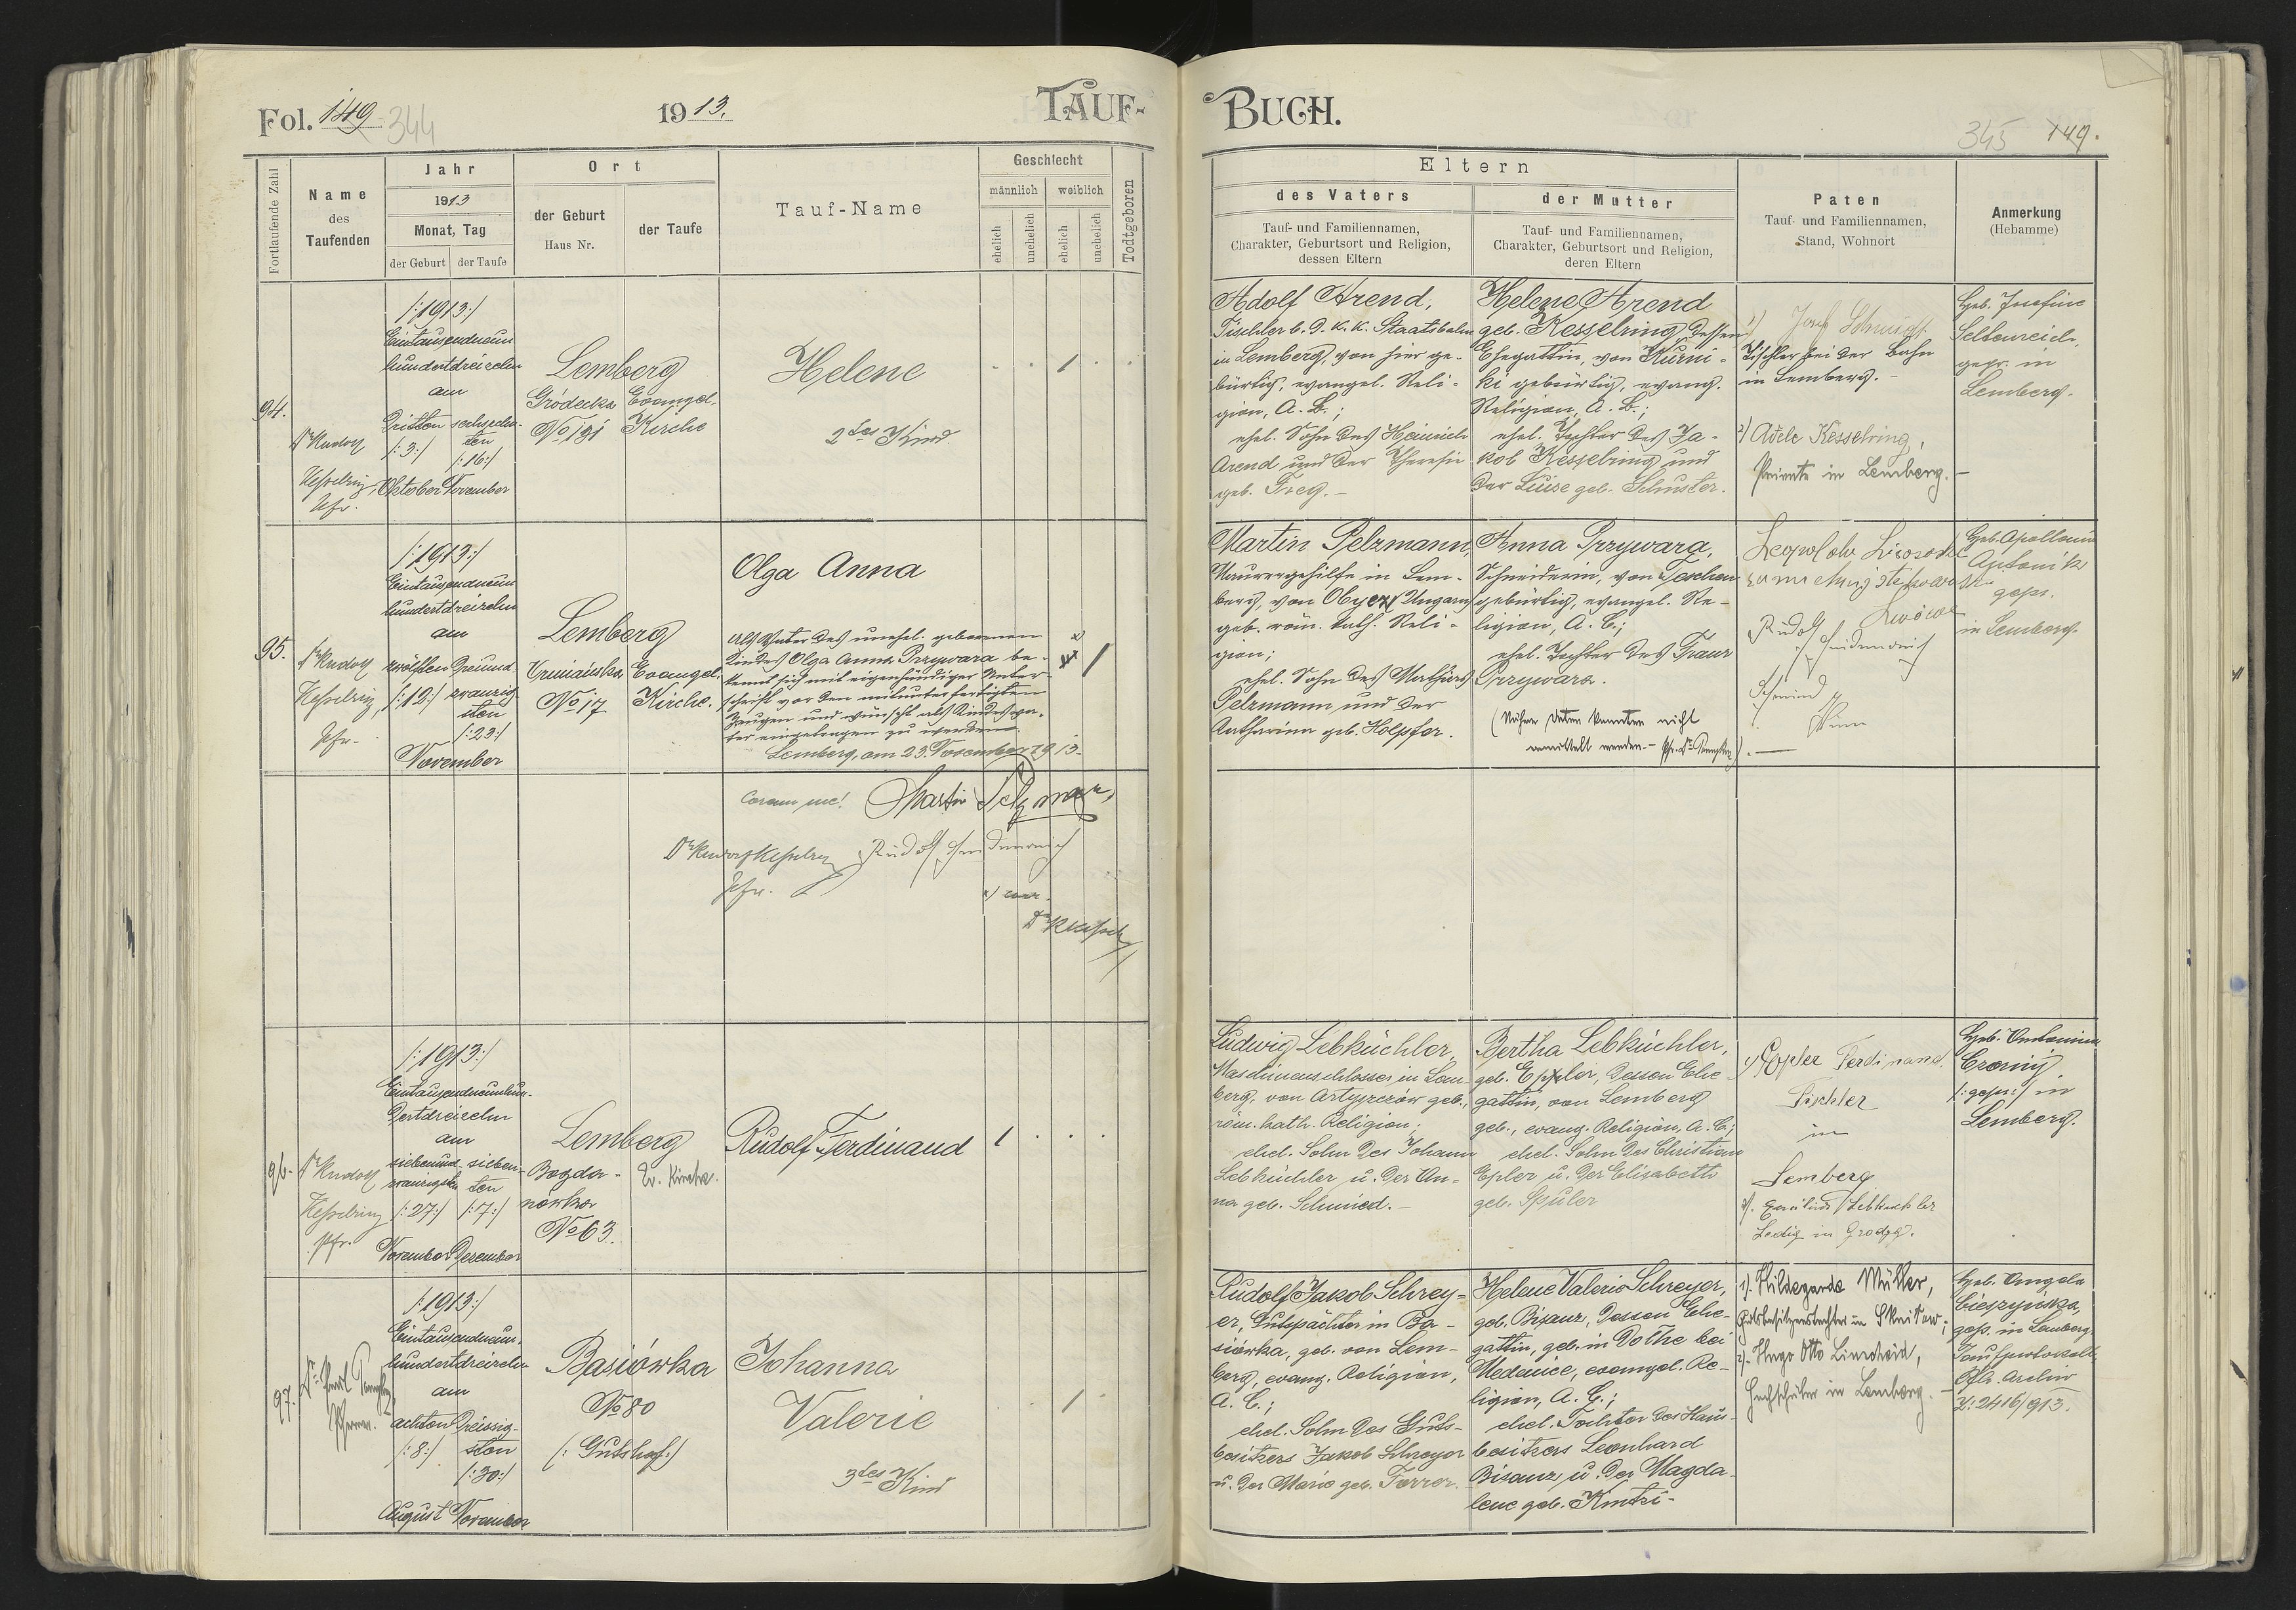 Fol. 149 344
1913.
TAUF-
BUCH.
345 149.
Fortlaufende Zahl
Name
des
Taufenden
Jahr
1913
Monat, Tag
der Geburt
der Taufe
Ort
der Geburt
Haus Nr.
der Taufe
Tauf-Name
Geschlecht
männlich
weiblich
ehelich
unehelich
ehelich
unehelich
Todtgeboren
Eltern
des Vaters
Tauf- und Familiennamen,
Charakter, Geburtsort und Religion,
dessen Eltern
der Mutter
Tauf- und Familiennamen,
Charakter, Geburtsort und Religion,
deren Eltern
Paten
Tauf- und Familiennamen,
Stand, Wohnort
Anmerkung
(Hebamme)
94.
Dr Rudolf
Kesselring,
Pfr.
/:1913:/
Eintausendneun
hundertdreizehn
am
Dritten
/:3:/
Oktober
sechzehn-
ten
/:16:/
November
Lemberg
Gródecka
No 131
Evangel.
Kirche
Helene
2tes Kind.
Adolf Arend,
Tischler b. d. k. k. Staatsbahn
in Lemberg, von hier ge-
bürtig, evangel. Reli-
gion, A. B.;
ehel. Sohn des Heinrich
Arend und der Theresie
geb. Treg. -
Helene Arend
geb. Kesselring, dessen
Ehegattin, von Kurni-
ki gebürtig, evang.
Religion, A. B.;
ehel. Tochter des Ja-
kob Kesselring und
der Luise geb. Schuster.
1) Josef Schmidt
Tischler bei der Bahn
in Lemberg. -
2) Adele Kesselring,
Private in Lemberg. -
Heb. Josefine
Seltenreich,
gepr. in
Lemberg.
95.
Dr Rudolf
Kesselring,
Pfr.
/:1913:/
Eintausendneun
hundertdreizehn
am
zwölften
/:12:/
Dreiund-
zwanzig-
sten
/:23:/
November
Lemberg
No 17
Evangel.
Kirche.
Olga Anna
Als Vater des unehel. geborenen
Kindes Olga Anna Przywara be-
kennt sich mit eigenhändiger Unter-
schrift vor den mitunterfertigten
Zeugen und wünscht als Kindesva-
ter eingetragen zu werden.
Lemberg, am 23. November 1913.
Coram me! Martin Pelzmann,
Dr Rudolf Kesselring
Pfr.
Rudolf
Martin Pelzmann,
Maurergehilfe in Lem-
berg, von Ungarn
geb. röm. kath. Reli-
gion;
ehel. Sohn des Mathias
Pelzmann und der
Katharina geb. Holpfer.
Anna Przywara,
Schneiderin, von Teschen
gebürtig, evangel. Re-
ligion, A. B.;
ehel. Tochter des Franz
Przywara.
(Nähere Daten konnten nicht
ermittelt werden. -
Leopold
Rudolf
Heb. Apollonia
Antonik
gepr.
in Lemberg.
96.
Dr Rudolf
Kesselring
Pfr.
/:1913:/
Eintausendneunhun-
dertdreizehn
am
siebenund-
zwanzigsten
/:27:/
November
sieben-
ten
/:7:/
Dezember
Lemberg
Bogda-
nówka
No 63.
Ev. Kirche.
Rudolf Ferdinand
Ludwig Lebküchler,
Maschinenschlosser in Lem-
berg, von Artyszczów geb.,
röm. kath. Religion;
ehel. Sohn des Johann
Lebküchler u. der An-
na geb. Schmied. -
Bertha Lebküchler,
geb. Eppler, dessen Ehe-
gattin, von Lemberg
geb., evang. Religion, A. B.;
ehel. Sohn des Christian
Epler u. der Elisabeth
geb. Spüler
1) Eppler Ferdinand.
Tischler
in
Lemberg
2). Lebküchler
Ledig in
Heb. Antonina
Czerny,
/:gepr:/ in
Lemberg.
97.
/:1913:/
Eintausendneun-
hundertdreizehn
am
achten
/:8:/
August
Dreissig-
sten
/:30:/
November
Basiówka
No 80
(: Gutshof:)
Johanna
Valerie
3tes Kind
Rudolf Jakob Schrey-
er, Gutspächter in Ba-
siówka, geb. von Lem-
berg, evang. Religion,
A. B.;
ehel. Sohn des Guts-
besitzers Jakob Schreyer
u. der Marie geb. Ferrer.
Helene Valerie Schreyer,
geb. Bisanz, dessen Ehe-
gattin, geb. in Dolhe bei
Medenice, evangel. Re-
ligion, A. B.;
ehel. Tochter des Haus-
besitzers Leonhard
Bisanz u. der Magda-
lene geb. Kintzi. -
1). Hildegarde Müller,
Gutsbesitzerstochter in Skniłow;
2). Hugo Otto Linscheid,
Hochschüler in Lemberg. -
Heb. Angela
Cieszyńska,
gepr. in Lemberg.
Taufprotokoll
Pfa. Archiv
Z: 2416/913.